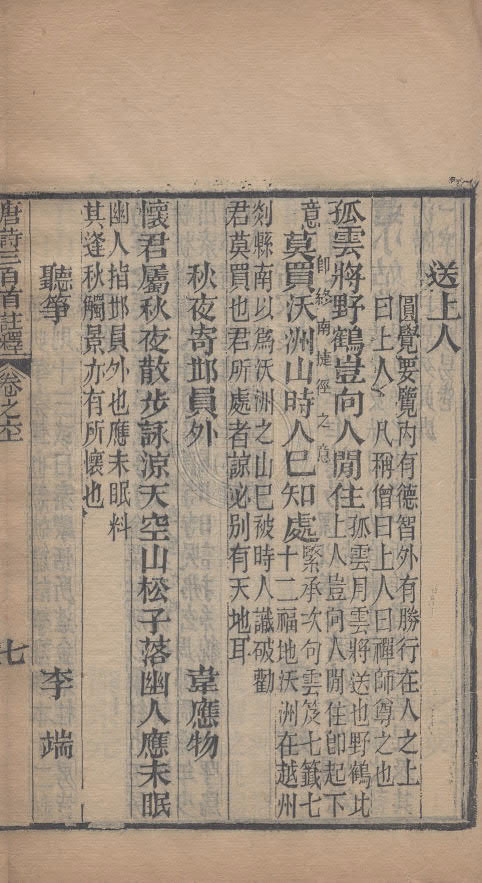 送上人
圓覺要覽內有德智外有勝行在人之上
曰上人 凡稱僧曰上人曰禪師尊之也
孤雲將野鶴豈向人閒住孤雲月雲將送也野鶴比上人豈向人閒住卽起下
意莫買沃洲山時人巳知處緊承次句雲笈七籤七十二福地沃洲在越州
卽終南捷徑之意
剡縣南以爲沃洲之山巳被時人識破勸
君莫買也君所處者諒必別有天地耳
秋夜寄邱員外 韋應物
懷君屬秋夜散步詠涼天空山松子落幽人應未眠
幽人指邱員外也應未眠料
其逢秋觸景亦有所懷也
聽箏 李端
唐詩三百首註釋 卷之六 七